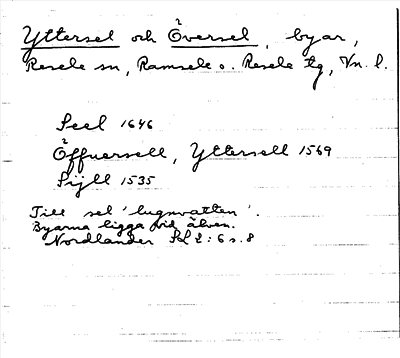 Yttersel och Översel, byar,
Resele sn, Ramsele o. Resele tg, Vn. l.
Seel 1646
Öffuersell, Yttersell 1569
Sijll 1535
Till sel 'lugnvatten'.
Byarna ligga vid älven.
Nordlander 2:6 s. 8